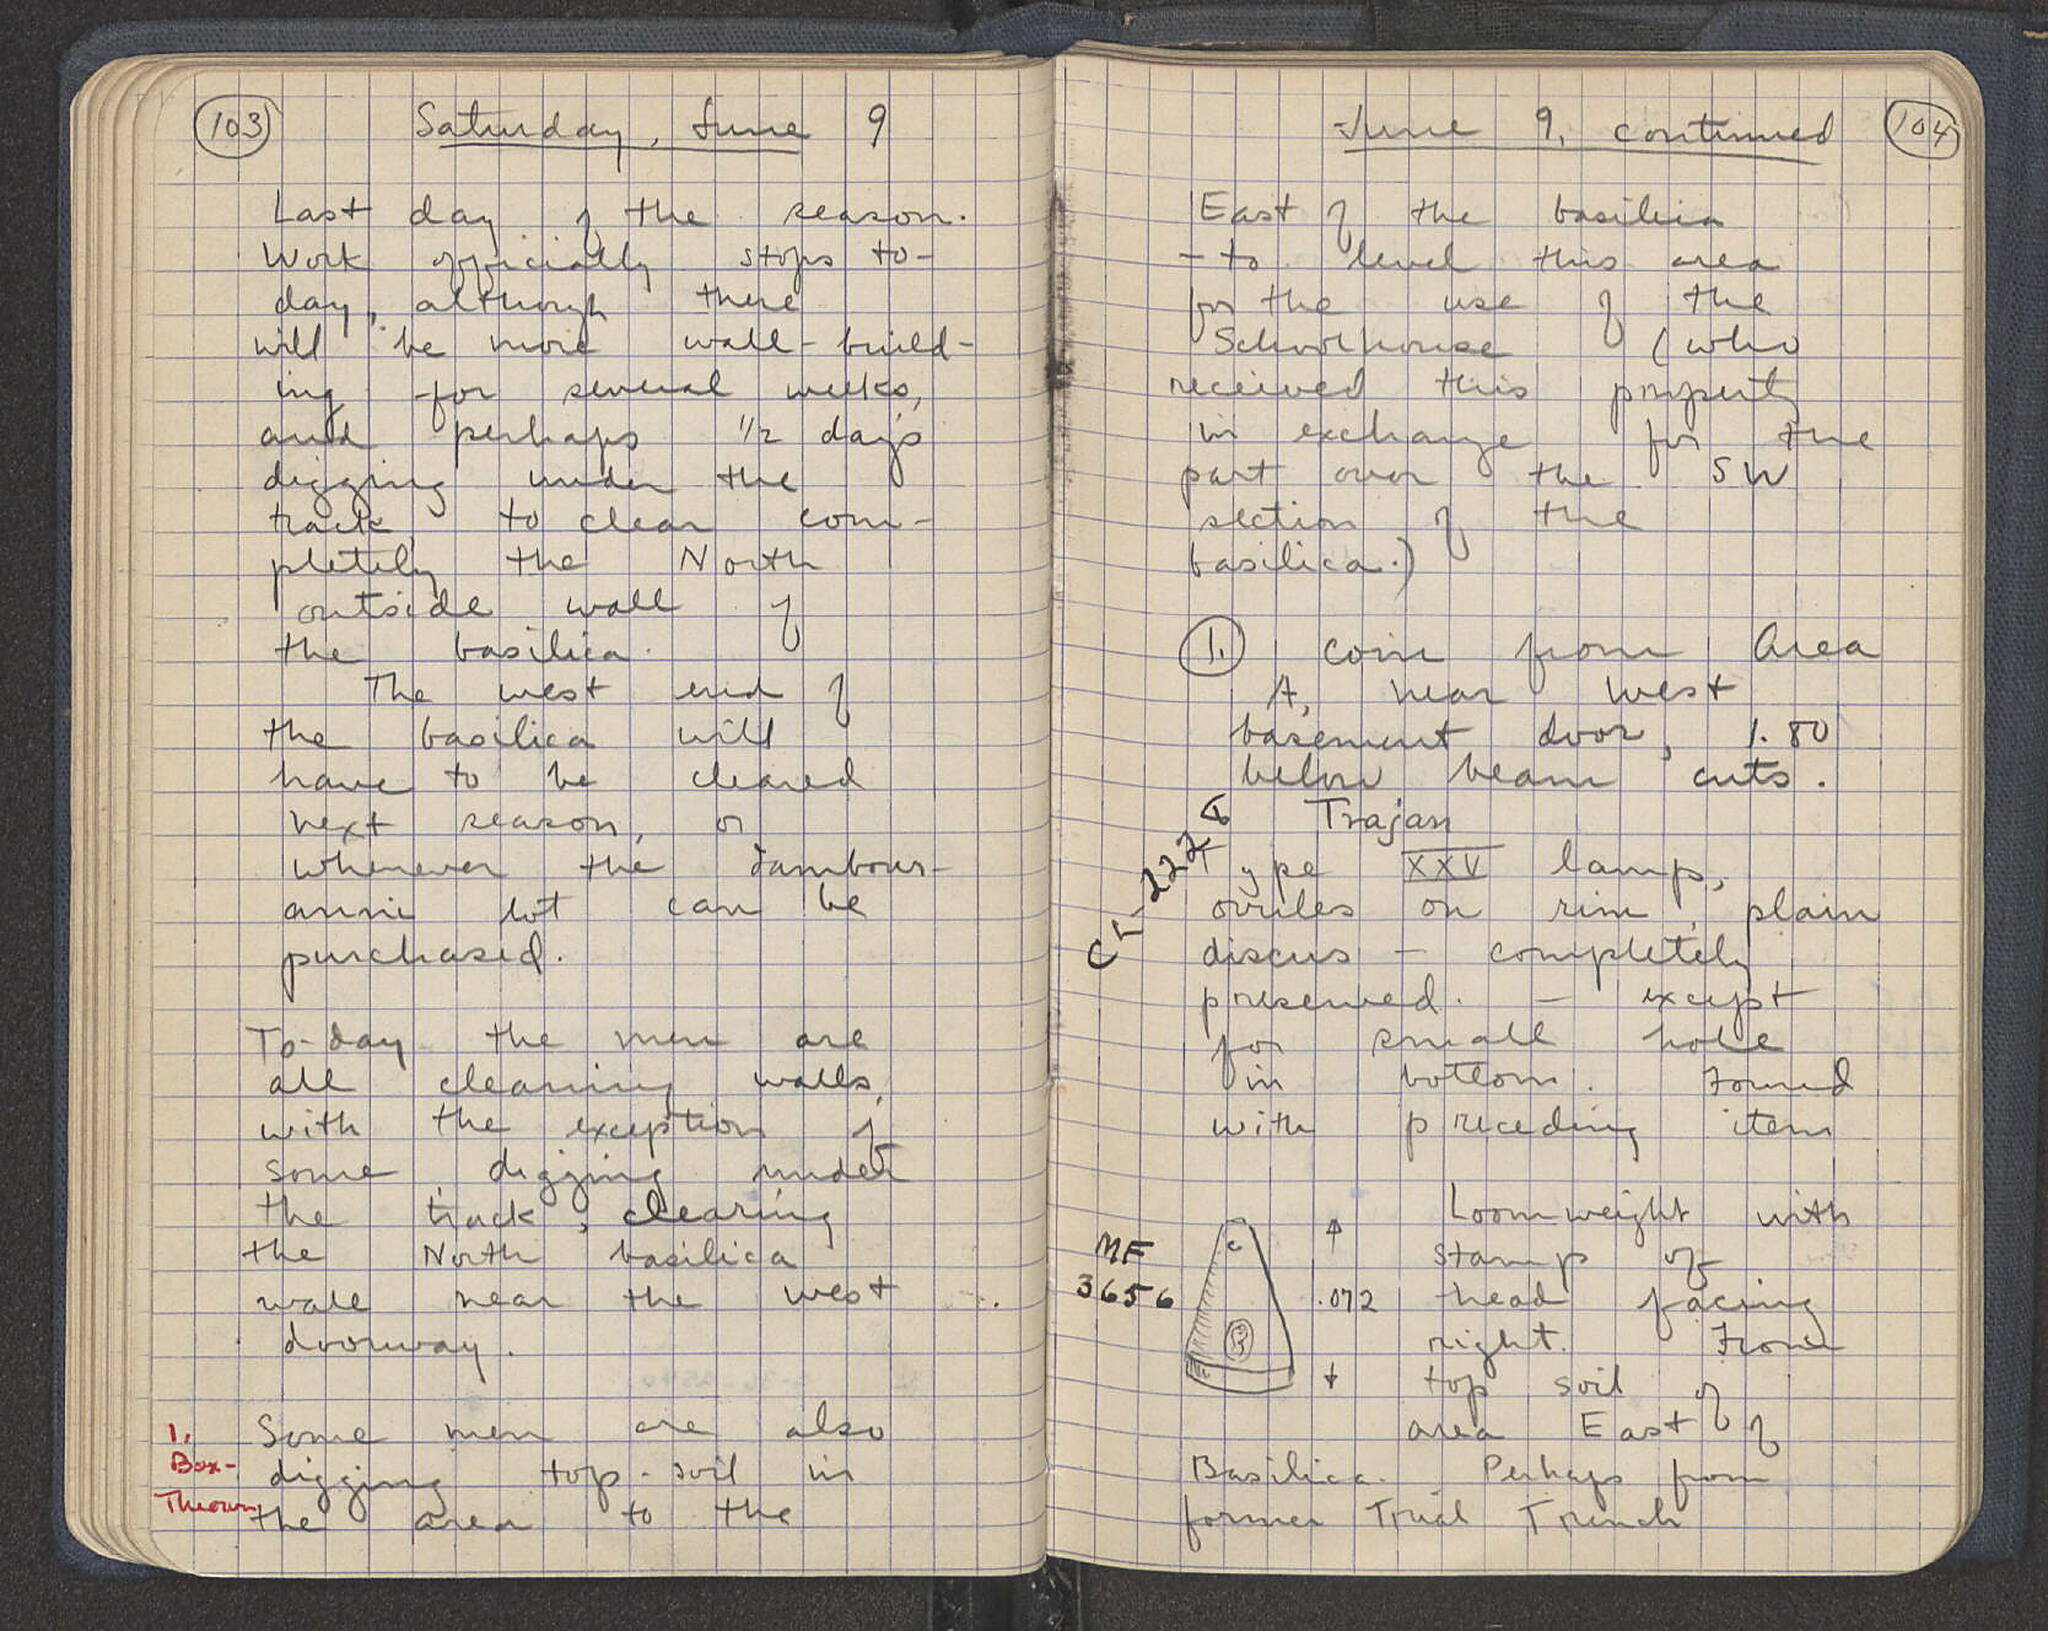 103
Saturday, June 9
Last day of the season.
Work officially stops to-
day, although there
will be more wall-build-
ing for several weeks,
and perhaps 1/2 day's
digging under the
track, to clear com-
pletely the North
outside wall of
the basilica.
The west end of
the basilica will
have to be cleared
next season, or
whenever the
lot can be
purchased.
To-day the men are
all cleaning walls,
with the exception of
some digging under
the track, clearing
the North basilica
wall near the west
doorway.
1.
Box-
Thrown
Some men are also
digging top-soil in
the area to the
June 9, continued
104
East of the basilica
- to level this area
for the use of the
Schoolhouse (who
received this property
in exchange for the
part over the SW
section of the
basilica.)
1. coin from Area
A, near West
basement door, 1.80
below beam cuts.
Trajan
Type XXV lamp,
ovules on rim, plain
discus - completely
preserved. - except
for small hole
in bottom. Found
with preceding item
MF
3656
.072
Loomweight with
stamp of
head facing
right. From
top soil of
area East of
Basilica. Perhaps from
former Trial Trench